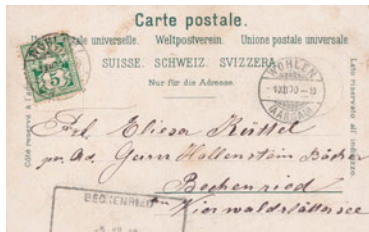 Carte postale.
Union postale universelle. Weltpostverein. Unione postale universale
SUISSE. SCHWEIZ. SVIZZERA.
Nur für die Adresse.
Côté réservé à l'adresse
Lato riservato all' indirizzo
5
WOHLEN
(AARGAU)
Frl. Eliesa Küttel
per Ad. Herrn Hallenstein Bäcker
Beckenried
Vierwaldstättersee
BECKENRIED